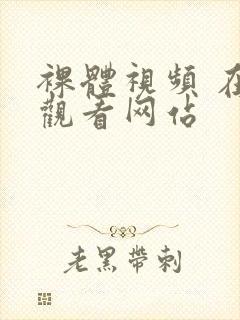 裸體視頻 在
觀看网佔
老黑帶刺